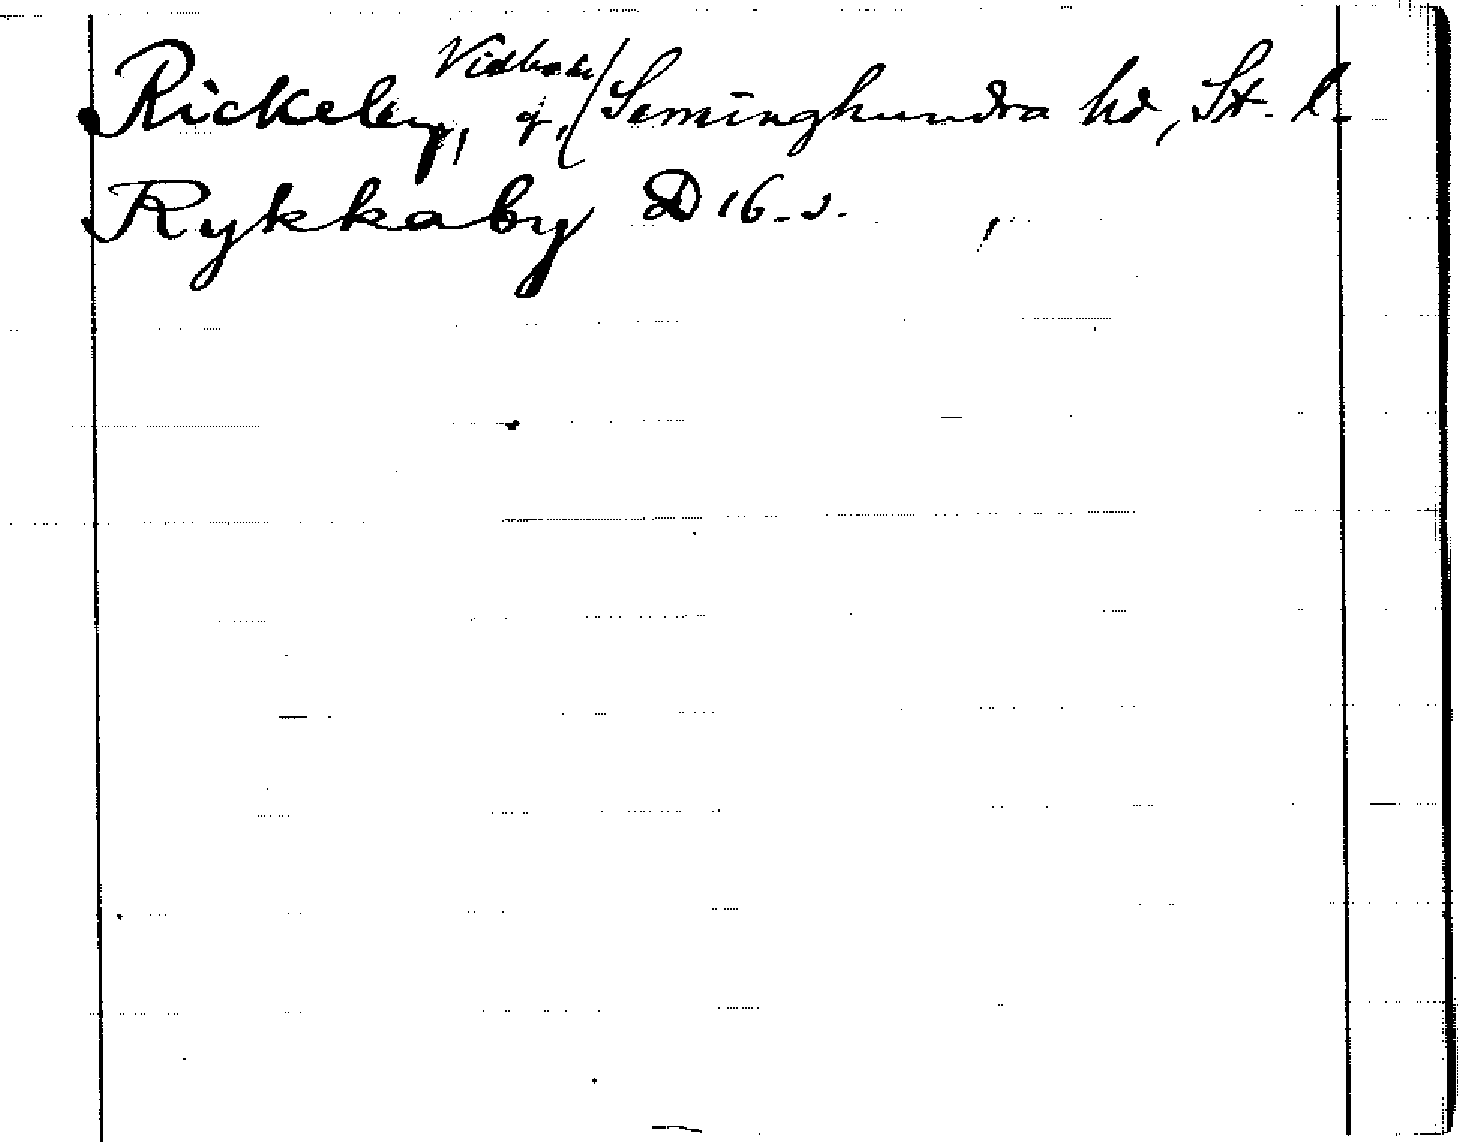 Rickeby, Vidbo sn, Seminghundra hd, St. l.
Rykkaby D 16 s.